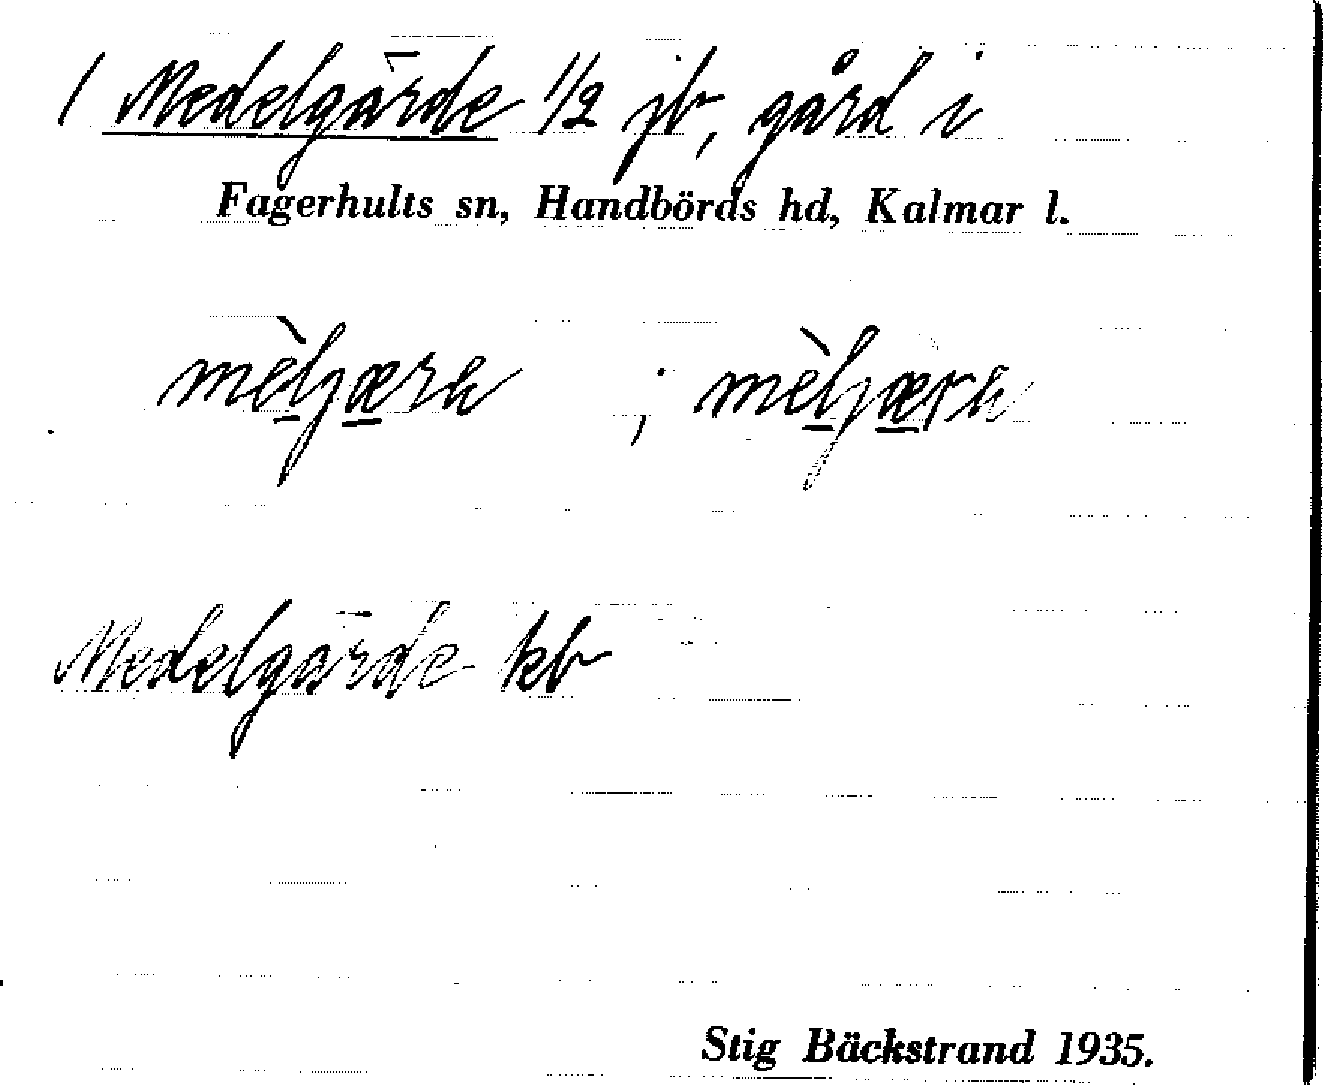 / Medelgärde 1/2 jb, gård i
Fagerhults sn, Handbörds hd, Kalmar l.
mèljærk ; mèljærk
Medelgärde kb
Stig Bäckstrand 1935.